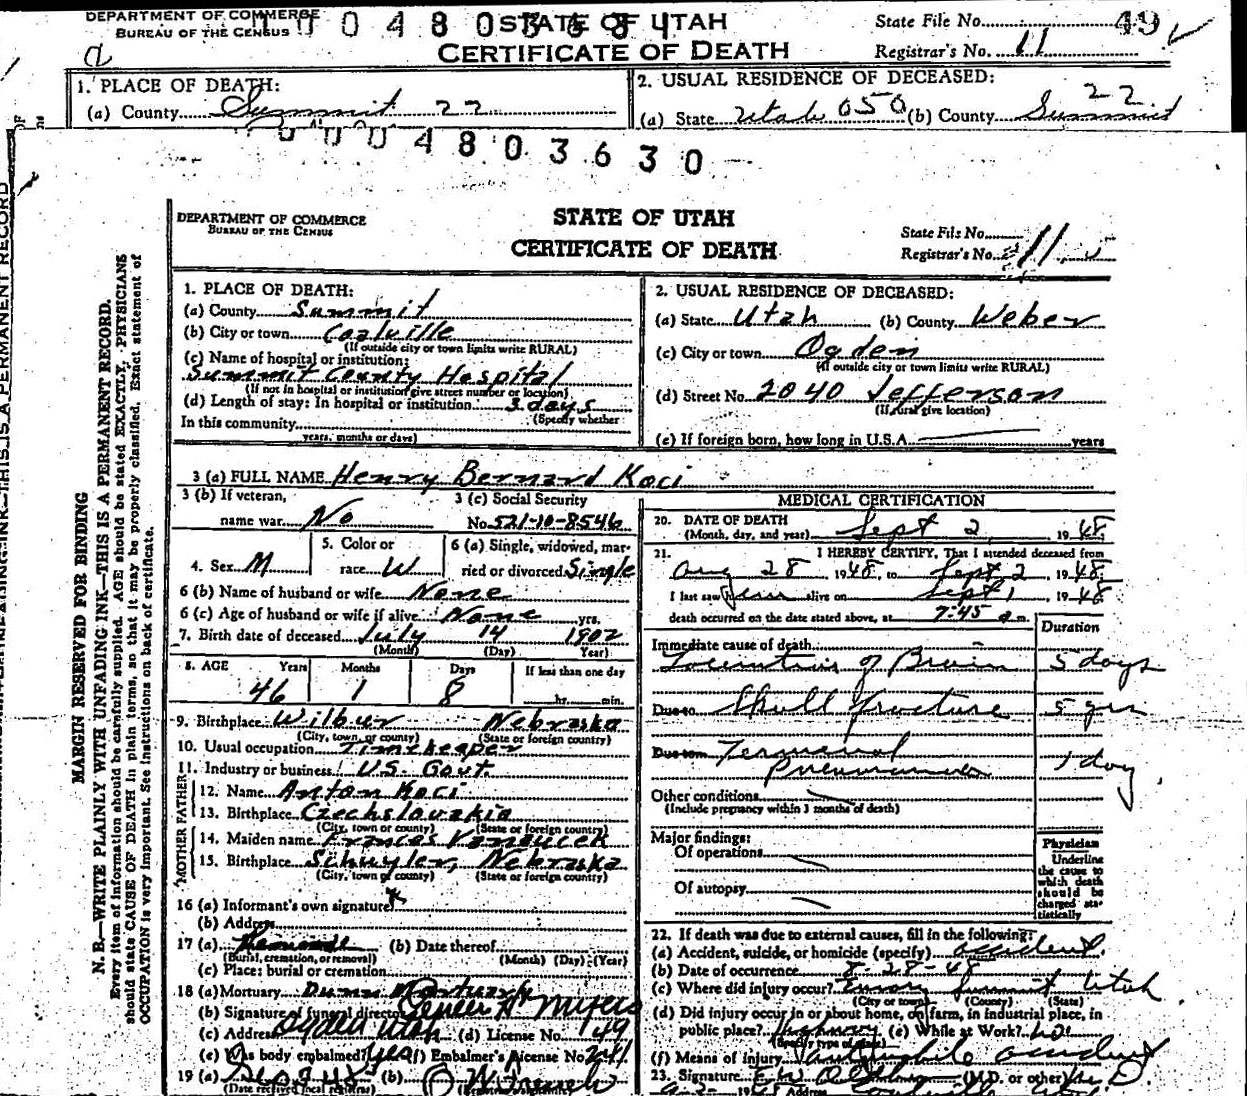 DEPARTMENT OF COMMERCE
BUREAU OF THE CENSUS
STATE OF UTAH
CERTIFICATE OF DEATH
State File No. 49
Registrar's No. 11
1. PLACE OF DEATH:
(a) County Summit 22
2. USUAL RESIDENCE OF DECEASED:
22
(a) State Utah 050 (b) County Summit
0004803630
DEPARTMENT OF COMMERCE
BUREAU OF THE CENSUS
STATE OF UTAH
CERTIFICATE OF DEATH
State File No.
Registrar's No. 11
MARGIN RESERVED FOR BINDING
N. B.—WRITE PLAINLY WITH UNFADING INK—THIS IS A PERMANENT RECORD.
Every item of information should be carefully supplied. AGE should be stated EXACTLY. PHYSICIANS
should state CAUSE OF DEATH in plain terms, so that it may be properly classified. Exact statement of
OCCUPATION is very important. See instructions on back of certificate.
1. PLACE OF DEATH:
(a) County Summit
(b) City or town Coalville
(If outside city or town limits write RURAL)
(c) Name of hospital or institution:
Summit County Hospital
(If not in hospital or institution give street number or location)
(d) Length of stay: In hospital or institution 3 days
(Specify whether
In this community
years, months or days)
2. USUAL RESIDENCE OF DECEASED:
(a) State Utah (b) County Weber
(c) City or town Ogden
(If outside city or town limits write RURAL)
(d) Street No. 2040 Jefferson
(If rural give location)
(e) If foreign born, how long in U.S.A. years
3 (a) FULL NAME Henry Bernard Koci
3 (b) If veteran,
name war No
3 (c) Social Security
No. 521-10-8546
4. Sex M
5. Color or
race W
6 (a) Single, widowed, mar-
ried or divorced Single
6 (b) Name of husband or wife None
6 (c) Age of husband or wife if alive None yrs.
7. Birth date of deceased July 14 1902
(Month) (Day) (Year)
8. AGE Years Months Days If less than one day
46 1 8 hr. min.
9. Birthplace Wilbur Nebraska
(City, town, or county) (State or foreign country)
10. Usual occupation Timekeeper
11. Industry or business U.S. Govt.
FATHER
12. Name Anton Koci
13. Birthplace Czechslovakia
(City, town or county) (State or foreign country)
MOTHER
14. Maiden name Frances
15. Birthplace Schuyler, Nebraska
(City, town or county) (State or foreign country)
16 (a) Informant's own signature x
(b) Address
17 (a) (b) Date thereof
(Burial, cremation, or removal) (Month) (Day) (Year)
(c) Place: burial or cremation
18 (a) Mortuary Mortuary
(b) Signature of funeral director Myers
(c) Address Ogden Utah (d) License No. 149
(e) Was body embalmed? Yes (f) Embalmer's License No. 2041
19 (a) (b)
(Date received local registrar)
MEDICAL CERTIFICATION
20. DATE OF DEATH
(Month, day, and year) Sept 2, 1948
21. I HEREBY CERTIFY, That I attended deceased from
Aug 28, 1948, to Sept 2, 1948.
I last saw him alive on Sept 1, 1948
death occurred on the date stated above, at 7:45 a m.
Duration
Immediate cause of death
of Brain 5 days
Due to Skull fracture
Due to Terminal
Pneumonia 1 day
Other conditions
(Include pregnancy within 3 months of death)
Major findings:
Of operations
Of autopsy
Physician
Underline
the cause to
which death
should be
charged sta-
tistically
22. If death was due to external causes, fill in the following:
(a) Accident, suicide, or homicide (specify) accident
(b) Date of occurrence 8-28-48
(c) Where did injury occur? Emory Summit Utah
(City or town) (County) (State)
(d) Did injury occur in or about home, on farm, in industrial place, in
public place? Highway (e) While at Work? no
(Specify type of place)
(f) Means of injury automobile accident
23. Signature (M.D. or other) M.D.
Address